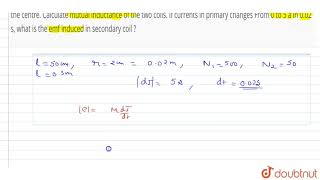 the centre. Calculate mutual inductance of the two coils. If currents in primary changes From 0 to 5 a in 0.02
s, what is the emf induced in secondary coil ?
l = 50cm, r = 2cm = 0.02m, N₁ = 500, N₂ = 50
l = 0.5m
|dI| = 5A, dt = 0.02s
|e| = M dI/dt
doubtnut